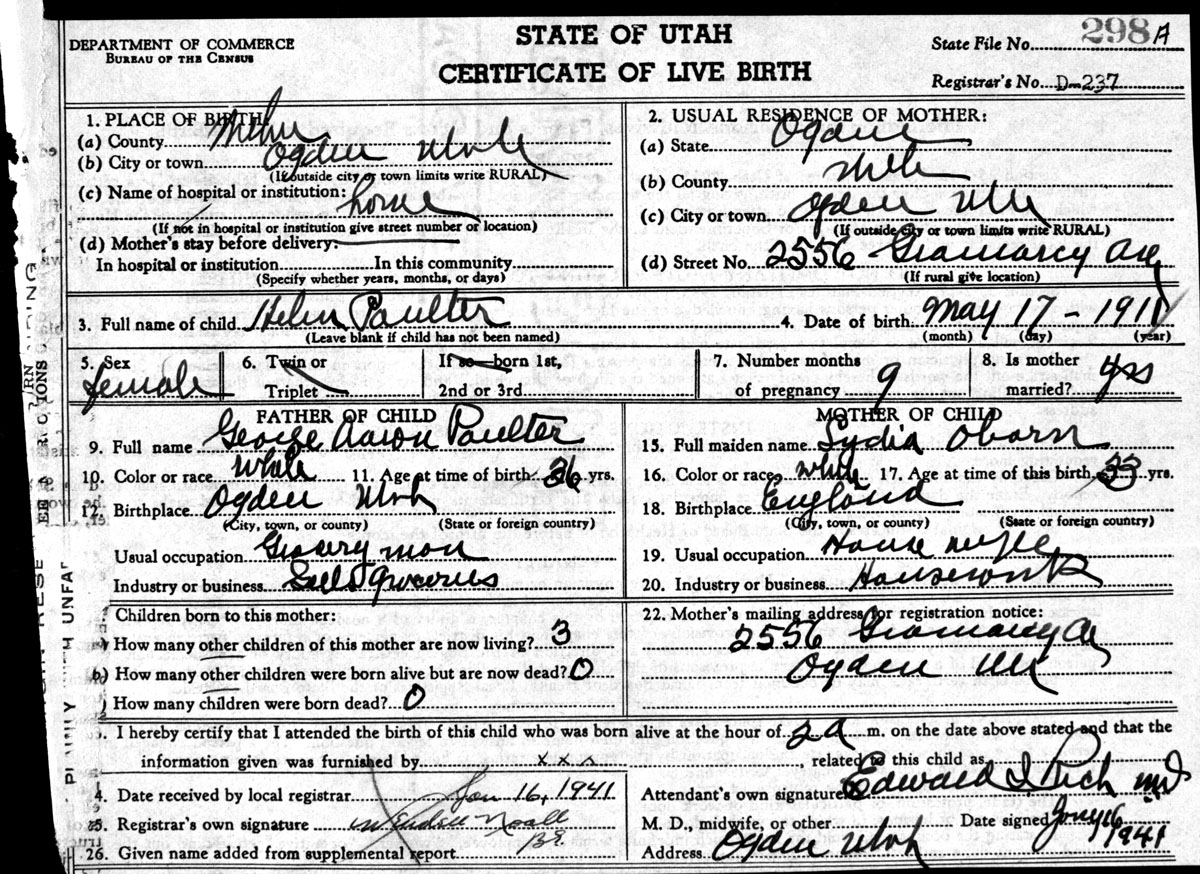 DEPARTMENT OF COMMERCE
BUREAU OF THE CENSUS
STATE OF UTAH
CERTIFICATE OF LIVE BIRTH
State File No. 298A
Registrar's No. D-237
1. PLACE OF BIRTH
(a) County
(b) City or town Ogden Utah
(If outside city or town limits write RURAL)
(c) Name of hospital or institution: home
(If not in hospital or institution give street number or location)
(d) Mother's stay before delivery:
In hospital or institution In this community
(Specify whether years, months, or days)
2. USUAL RESIDENCE OF MOTHER:
(a) State Ogden
(b) County
(c) City or town Ogden
(If outside city or town limits write RURAL)
(d) Street No. 2556 Gramarcy Ave
(If rural give location)
3. Full name of child Helen Paulter 4. Date of birth May 17-1911
(Leave blank if child has not been named) (month) (day) (year)
5. Sex 6. Twin or If so born 1st, 7. Number months 8. Is mother
female Triplet 2nd or 3rd of pregnancy 9 married? yes
FATHER OF CHILD
9. Full name George Aaron Paulter
10. Color or race White 11. Age at time of birth 36 yrs.
12. Birthplace Ogden Utah
(City, town, or county) (State or foreign country)
Usual occupation Grocery man
Industry or business Sells Groceries
MOTHER OF CHILD
15. Full maiden name Lydia Oborn
16. Color or race White 17. Age at time of this birth 33 yrs.
18. Birthplace England
(City, town, or county) (State or foreign country)
19. Usual occupation House wife
20. Industry or business Housework
Children born to this mother:
How many other children of this mother are now living? 3
) How many other children were born alive but are now dead? 0
) How many children were born dead? 0
22. Mother's mailing address for registration notice:
2556 Gramarcy
Ogden
. I hereby certify that I attended the birth of this child who was born alive at the hour of 2 a m. on the date above stated and that the
information given was furnished by xxx, related to this child as
4. Date received by local registrar Jan 16, 1941
5. Registrar's own signature
26. Given name added from supplemental report
Attendant's own signature Edward I Rich MD
M. D., midwife, or other Date signed Jany 16
1941
Address Ogden Utah